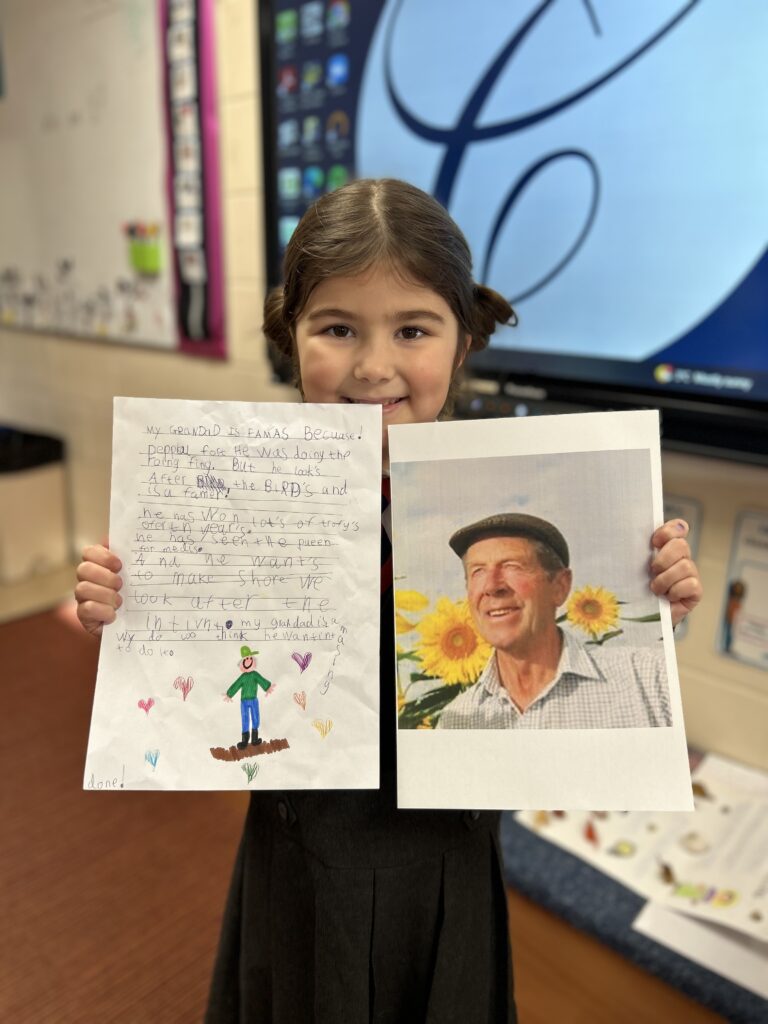 MY GRANDAD IS FAMAS Becuase!
fose He was doing the
fing. But he look's
After the BiRD's and
is a famer!
he has won lot's of trofy's
ofer th years.
he has seen the queen
for medls.
And he want's
to make shore we
look after the
my grandad is a
mazing
Wy do we think he
to do
done!